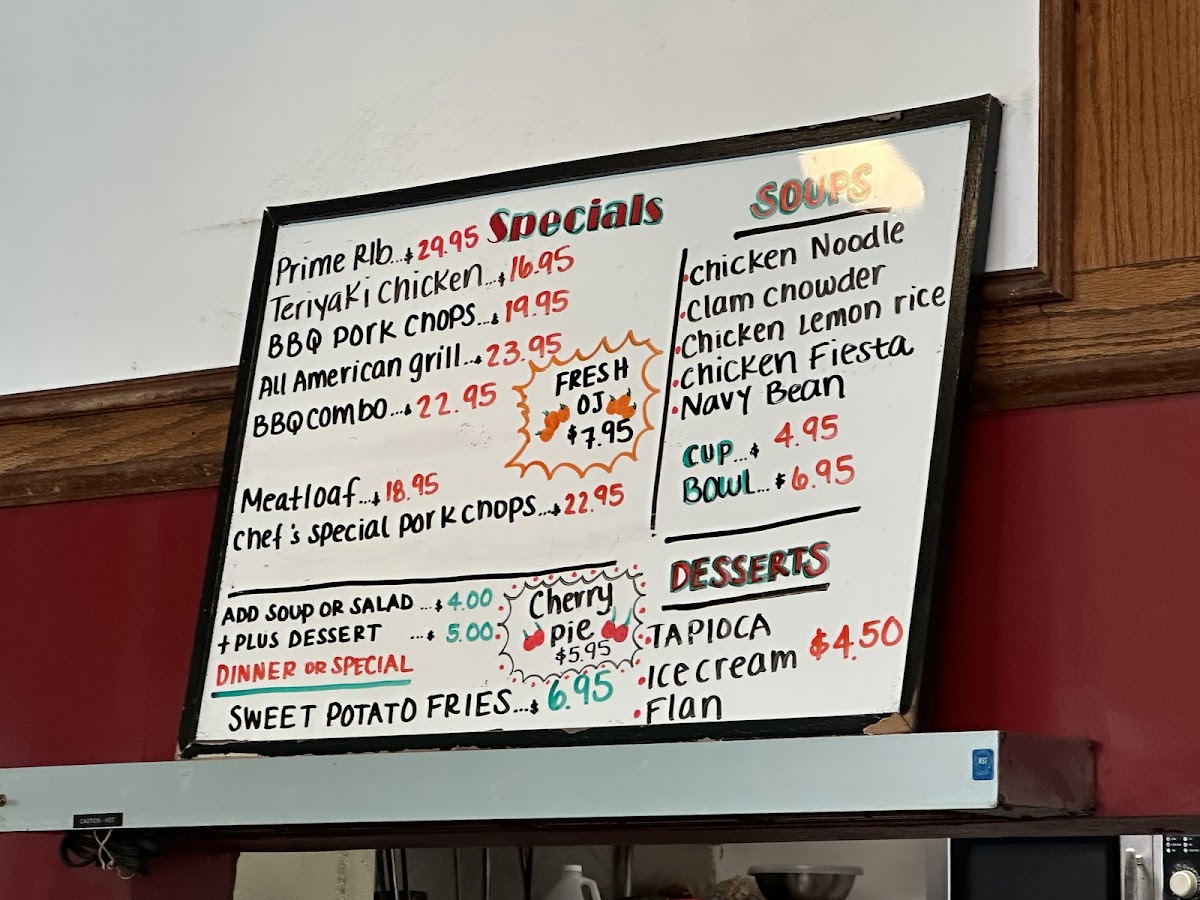 Specials
Prime RIb...$29.95
Teriyaki Chicken...$16.95
BBQ PORK CHOPS...$19.95
All American grill...$23.95
BBQ combo...$22.95
FRESH
OJ
$7.95
Meatloaf...$18.95
Chef's special PORK CHOPS...$22.95
ADD SOUP OR SALAD ...$4.00
+ PLUS DESSERT ...$5.00
DINNER OR SPECIAL
SWEET POTATO FRIES...$6.95
Cherry
pie
$5.95
SOUPS
•Chicken Noodle
•Clam Chowder
•Chicken Lemon rice
•Chicken Fiesta
•Navy Bean
CUP...$4.95
BOWL...$6.95
DESSERTS
•TAPIOCA
•Ice cream $4.50
•Flan
NSF
CAUTION - HOT